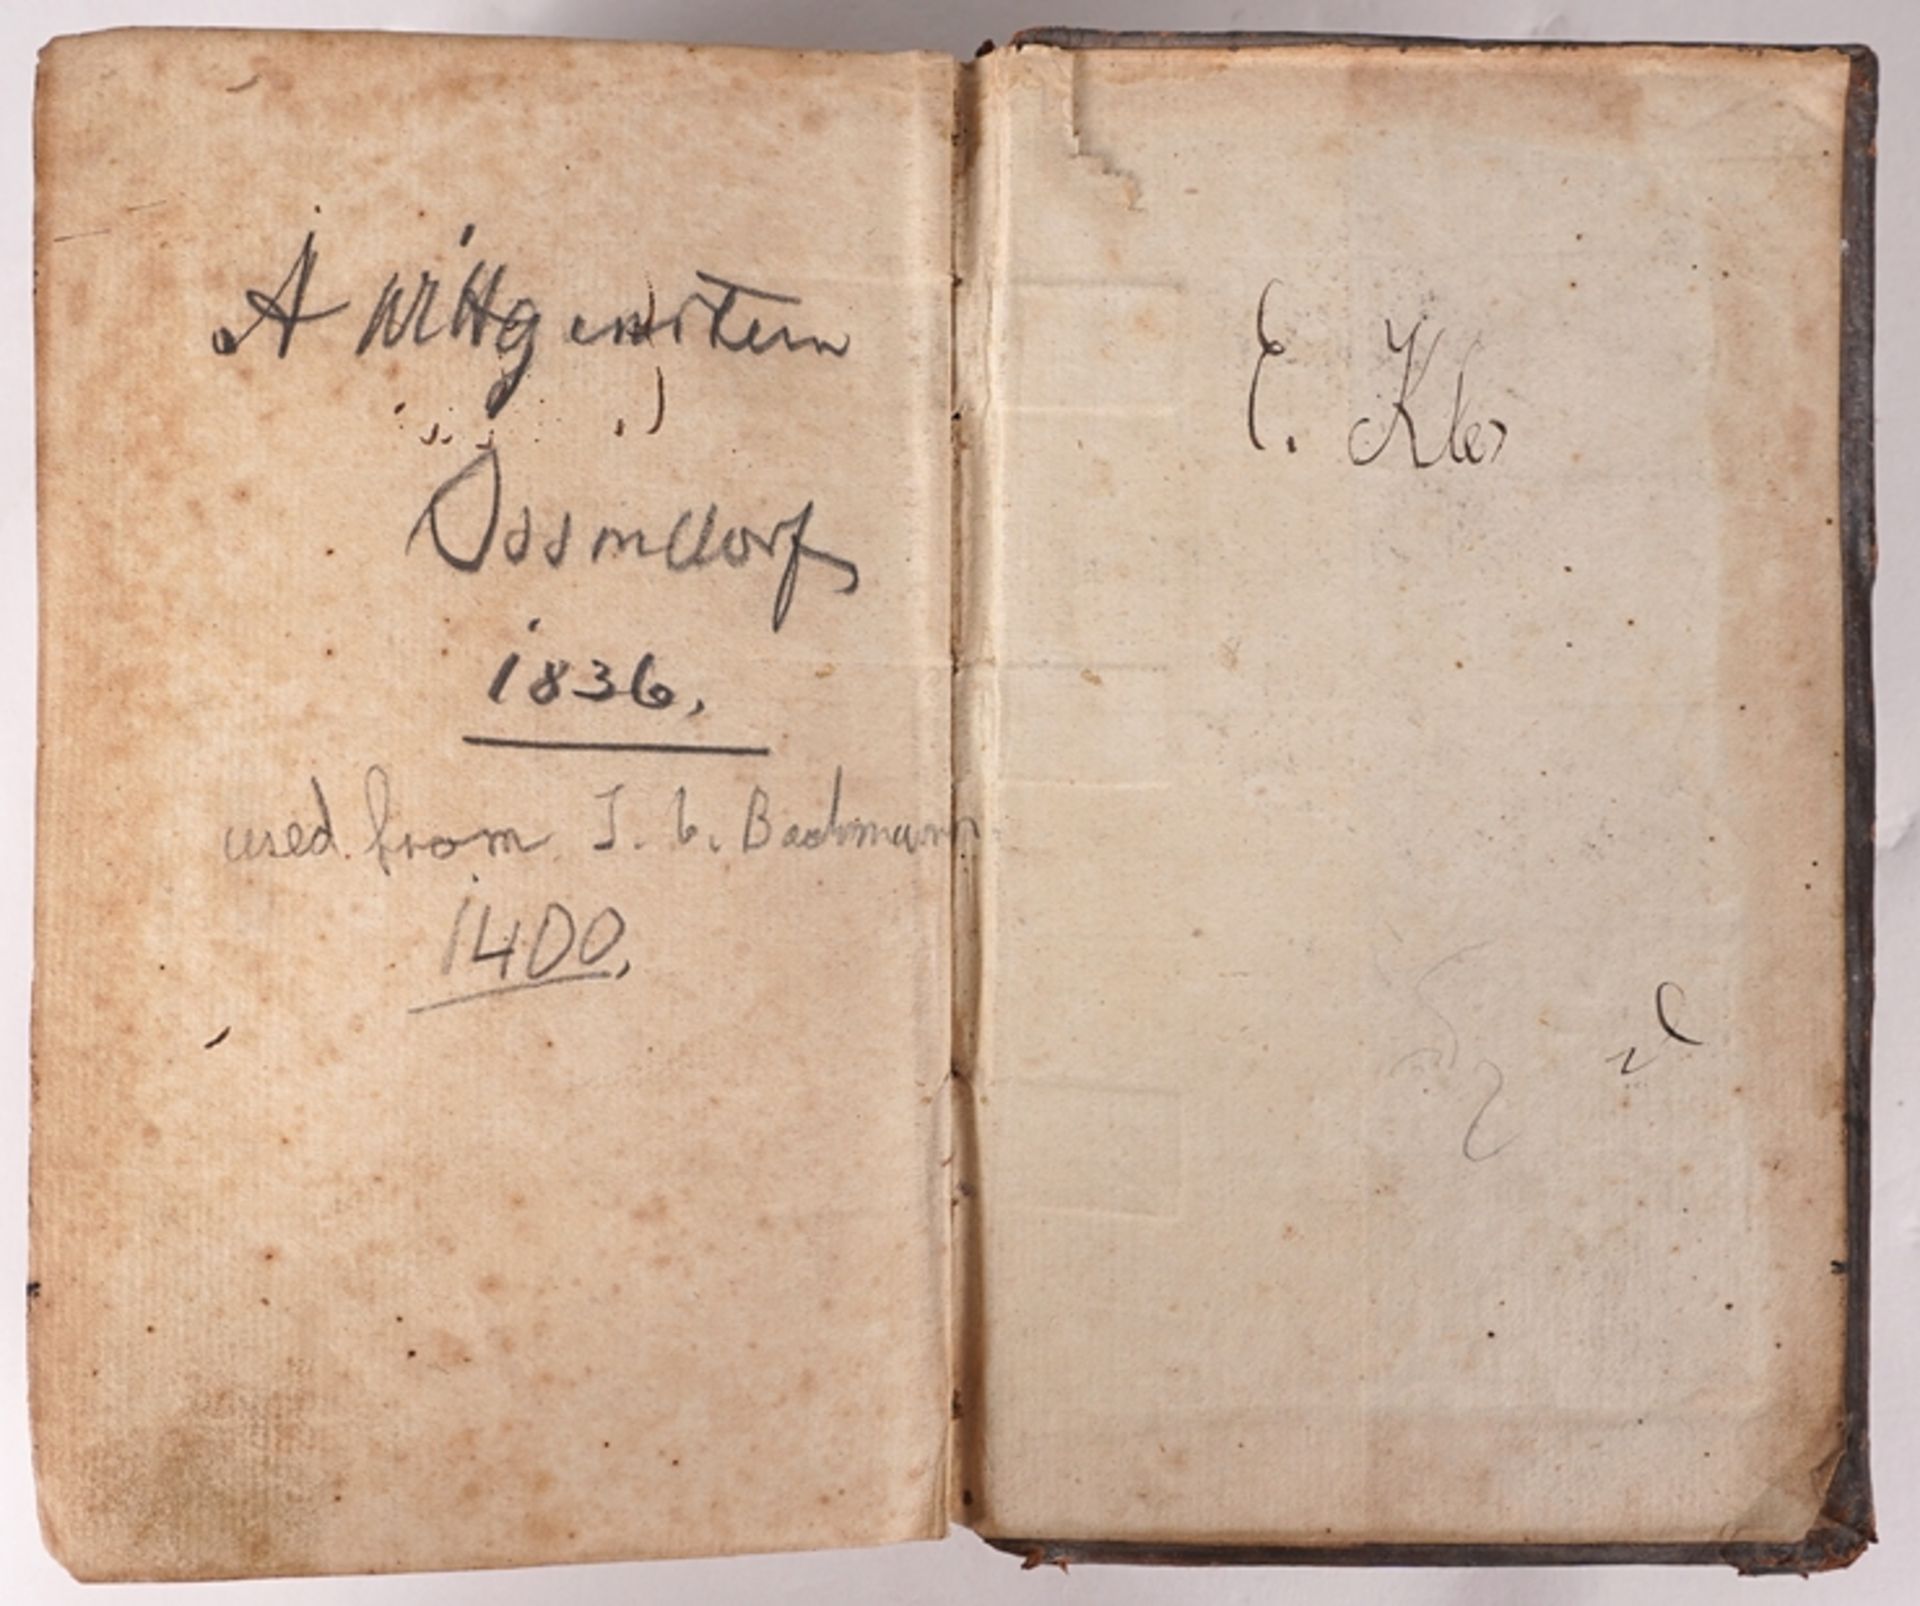 A Wittgenstein
Ossendorf
1836.
used from J. C. Bachmann
1400.
E. Kles